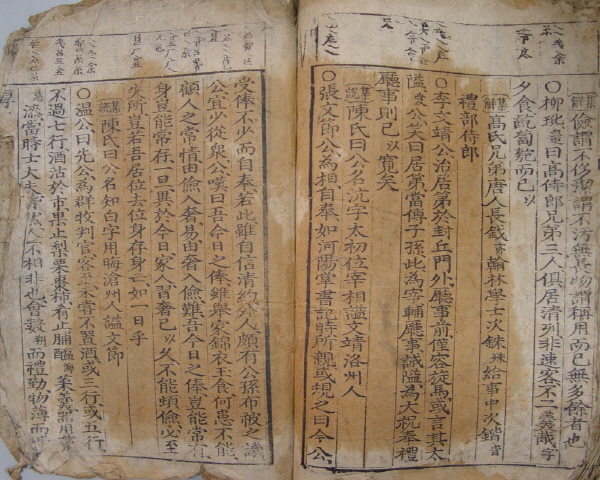 集解 儉謂不侈潔謂不汚無羨物謂稱用而已無多餘者也
○柳玭曰高侍郎兄弟三人俱居清列非速客不二羹胾字
夕食齕蔔匏而已
集解 高氏兄弟唐人長釴亦翰林學士次銖殊給事中次鍇皆
禮部侍郎
○李文靖公治居第於封丘門外廳事前僅容旋馬或言其太
隘公笑曰居第當傳子孫此爲宰輔廳事誠隘爲大祝奉禮
廳事則已寬矣
集說 陳氏曰公名沆字太初位宰相謚文靖洺州人
○張文節公爲相自奉如河陽掌書記時所親或規之曰今公
受俸不少而自奉若此雖自信清約外人頗有公孫布被之譏
公宜少從衆公嘆曰吾今日之俸雖擧家錦衣玉食何患不能
顧人之常情由儉入奢易由奢入儉難吾今日之俸豈能常有
身豈能常存一旦異於今日家人習奢已久不能頓儉必至
失所豈若吾居位去位身存身亡如一日乎
集說 陳氏曰公名知白字用晦滄州人謚文節
○温公曰先公爲群牧判官客至未嘗不置酒或三行或五行
不過七行酒沽於市果止梨栗棗柿肴止脯醢菜羹器用甆
漆當時士大夫皆然人不相非也會數朔而禮勤物薄而